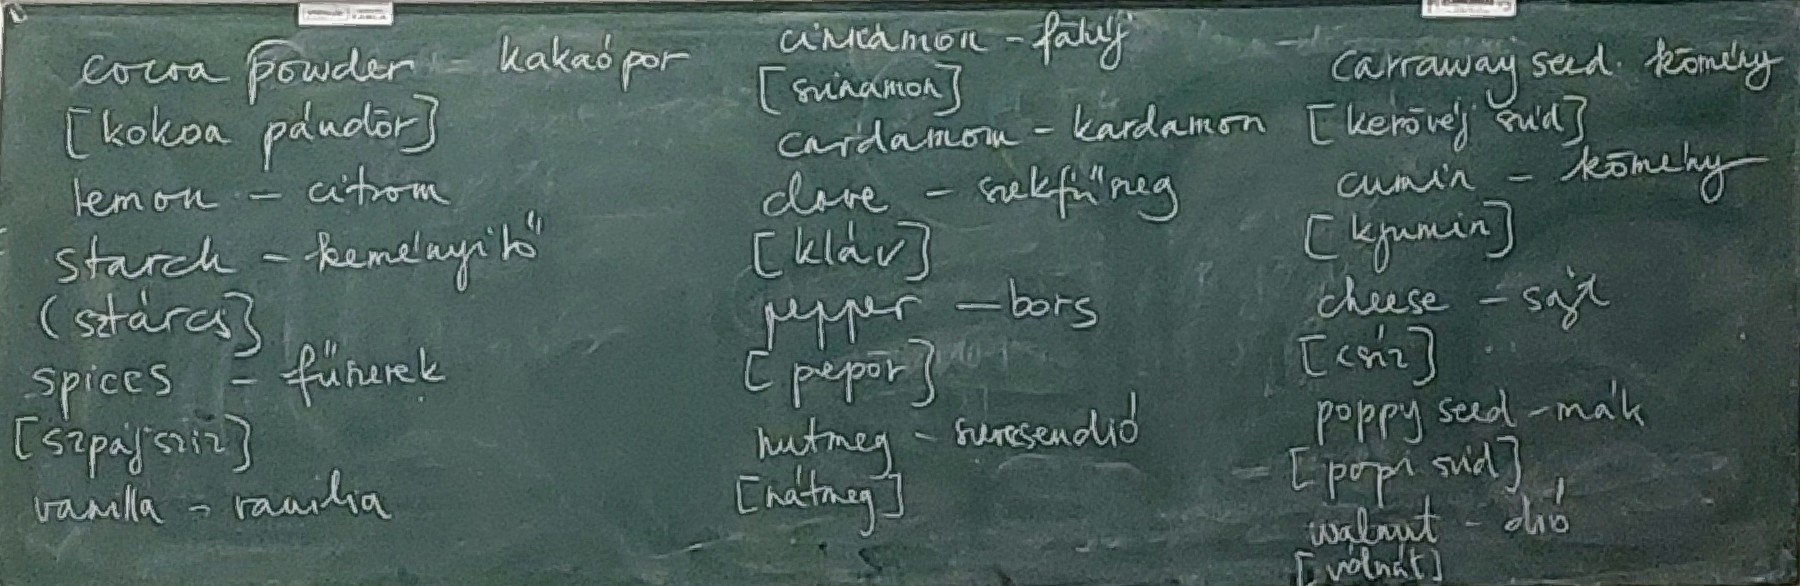 cocoa powder - kakaópor
[kokoa páudör]
lemon - citrom
starch - keményítő
(sztárcs]
spices - fűszerek
[szpájsziz]
vanilla - vanília
cinnamon - fahéj
[szinamon]
cardamom - kardamon
clove - szekfűszeg
[kláv]
pepper - bors
[pepör]
nutmeg - szerecsendió
[nátmeg]
carraway seed. kömény
[keröwéj szíd]
cumin - kömény
[kjumin]
cheese - sajt
[csíz]
poppy seed - mák
[popi szíd]
walnut - dió
[volnát]